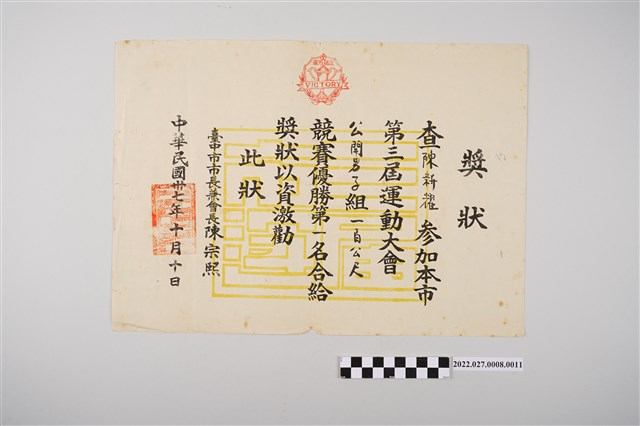 VICTORY
獎狀
查陳新擢參加本市
第三屆運動大會
公開男子組一百公尺
競賽優勝第一名合給
獎狀以資激勸
此狀
臺中市市長兼會長陳宗熙
中華民國卅七年十月十日
2022.027.0008.0011